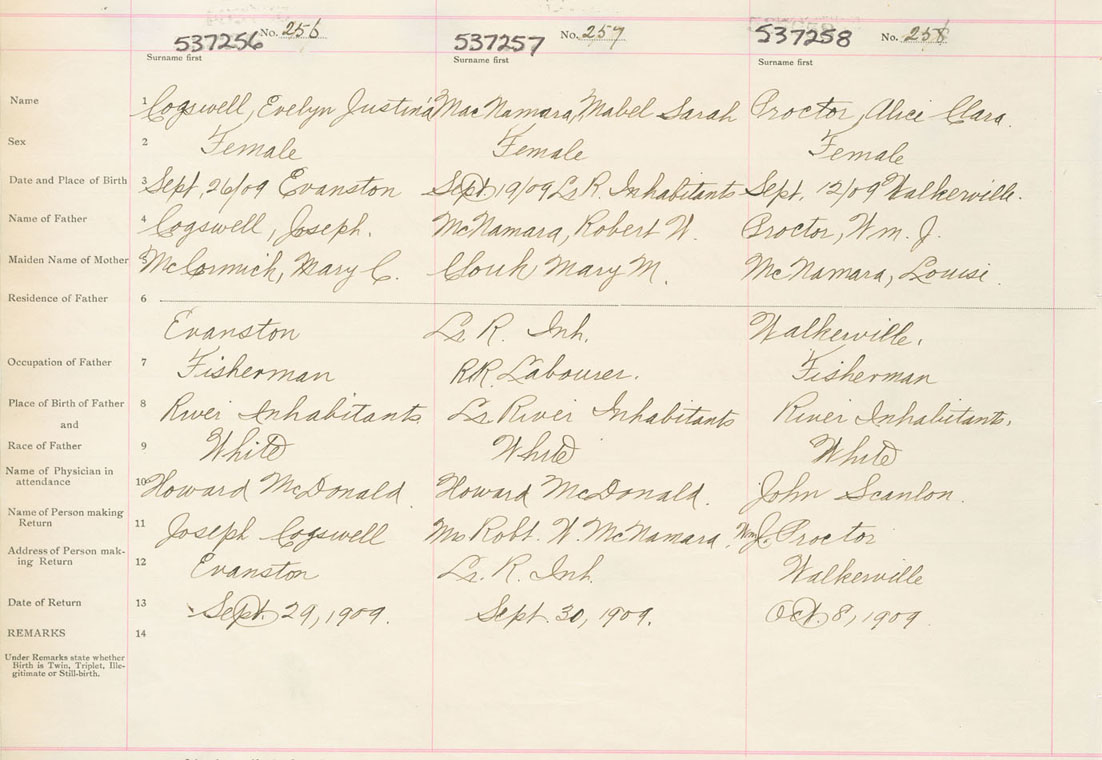 537256 No. 256 537257 No. 257 537258 No. 258
Surname first Surname first Surname first
Name 1 Cogswell, Evelyn Justina MacNamara, Mabel Sarah Proctor, Alice Clara.
Sex 2 Female Female Female
Date and Place of Birth 3 Sept. 26/09 Evanston Sept. 19/09 Lr R. Inhabitants Sept. 12/09 Walkerville.
Name of Father 4 Cogswell, Joseph. McNamara, Robert W. Proctor, Wm. J.
Maiden Name of Mother 5 McCormick, Mary C. Mary M. McNamara, Louise.
Residence of Father 6
Evanston Lr R. Inh. Walkerville.
Occupation of Father 7 Fisherman RR Labourer. Fisherman
Place of Birth of Father 8 River Inhabitants Lr River Inhabitants River Inhabitants.
and
Race of Father 9 White White White
Name of Physician in
attendance 10 Howard McDonald Howard McDonald. John Scanlon.
Name of Person making
Return 11 Joseph Cogswell Mrs Robt. W. McNamara. Wm J. Proctor
Address of Person mak-
ing Return 12 Evanston Lr. R. Inh. Walkerville
Date of Return 13 Sept. 29, 1909. Sept. 30, 1909. Oct. 8, 1909
REMARKS 14
Under Remarks state whether
Birth is Twin, Triplet, Ille-
gitimate or Still-birth.